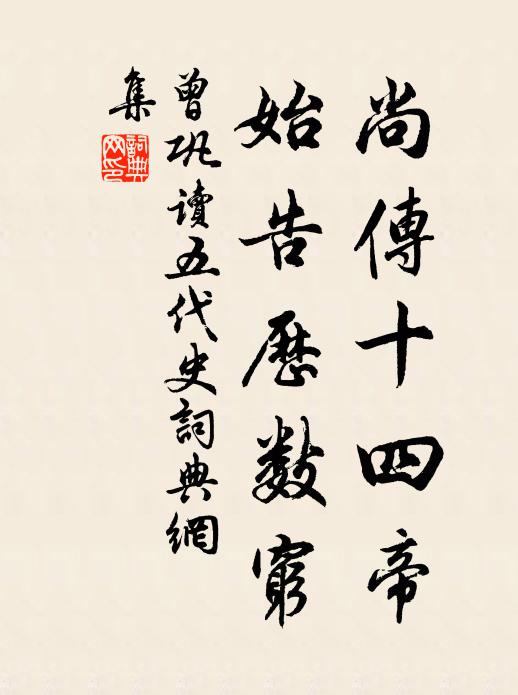 尚傳十四帝
始告歷數窮
曾巩讀五代史詞典網
集
詞典網印